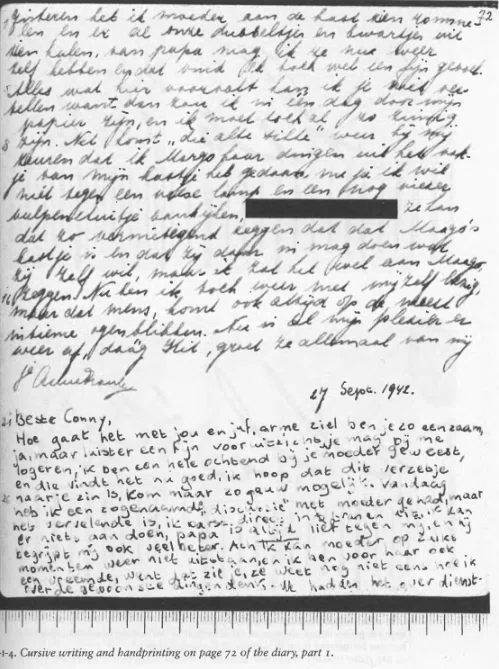 72
gisteren het ik moeder aan de kast zien romme
len en er al onze dubbeltjes en kwartjes uit
zien halen, van papa mag ik ze nu weer
zelf hebben en dat vind ik toch wel een fijn
Alles wat hier voorvalt kan ik je niet ver
tellen want dan zou ik in één dag door mijn
papier zijn, en ik moet toch al zo zuinig
zijn. Net komt "die alte stille" weer bij mij
keuren dat ik Margo haar dingen uit het vak-
je van mijn kastje heb gedaan, nu ja ik wil
niet tegen een lamp en een nog
ze kan
dat zo vernietigend zeggen dat dat Margo's
kastje is en dat zij daar in mag doen wat
zij zelf wil, maar ik zal het wel aan Margo,
zeggen. Nu ben ik toch weer met mijzelf
maar dat mens, komt ook altijd op de meest
intieme ogenblikken. Nu is al mijn plezier er
weer af, daag Kit, groet ze allemaal van mij
je Anne Frank
27 Sept. 1942.
Beste Conny,
Hoe gaat het met jou en jaf, arme ziel ben je zo eenzaam,
ja, maar luister een fijn vooruitzicht, je mag bij me
logeren, ik ben een hele ochtend bij je moeder geweest,
en die vindt het nu goed, ik hoop dat dit verzetje
naar je zin is, kom maar zo gauw mogelijk. Vandaag
heb ik een zogenaamde "discussie" met moeder gehad, maar
het vervelende is, ik barst direct in tranen uit, ik kan
er niets aan doen, papa is altijd lief tegen mij, en hij
begrijpt mij ook veel beter. Ach ik kan moeder op zulke
momenten weer niet uitstaan, en ik ben voor haar ook
een vreemde, want dat zie je, ze weet nog niet eens hoe ik
over de gewoonste dingen denk. We hadden het over dienst-
1-4. Cursive writing and handprinting on page 72 of the diary, part 1.